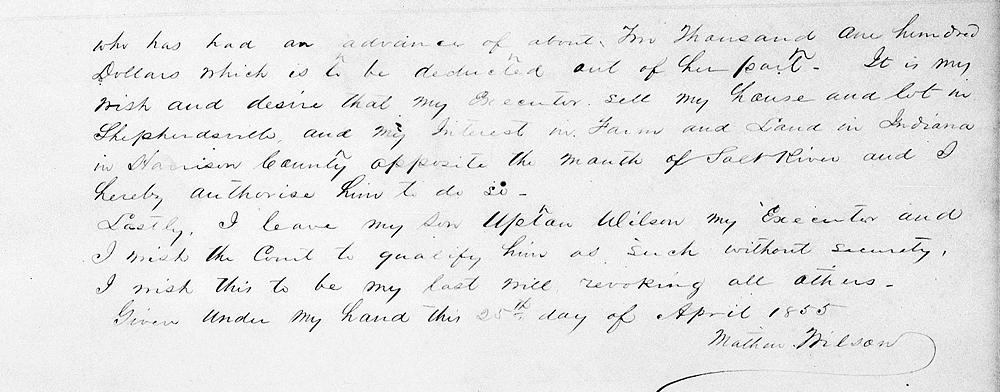 who has had an advance of about Two Thousand one hundred
Dollars which is to be deducted out of her part - It is my
wish and desire that my Executor sell my house and lot in
Shepherdsville, and my Interest in Farm and Land in Indiana
in Harrison County opposite the mouth of Salt River and I
hereby authorise him to do so -
Lastly, I leave my son Upton Wilson my Executor and
I wish the Court to qualify him as such without security,
I wish this to be my last will revoking all others -
Given under my hand this 25th day of April 1855
Wilson